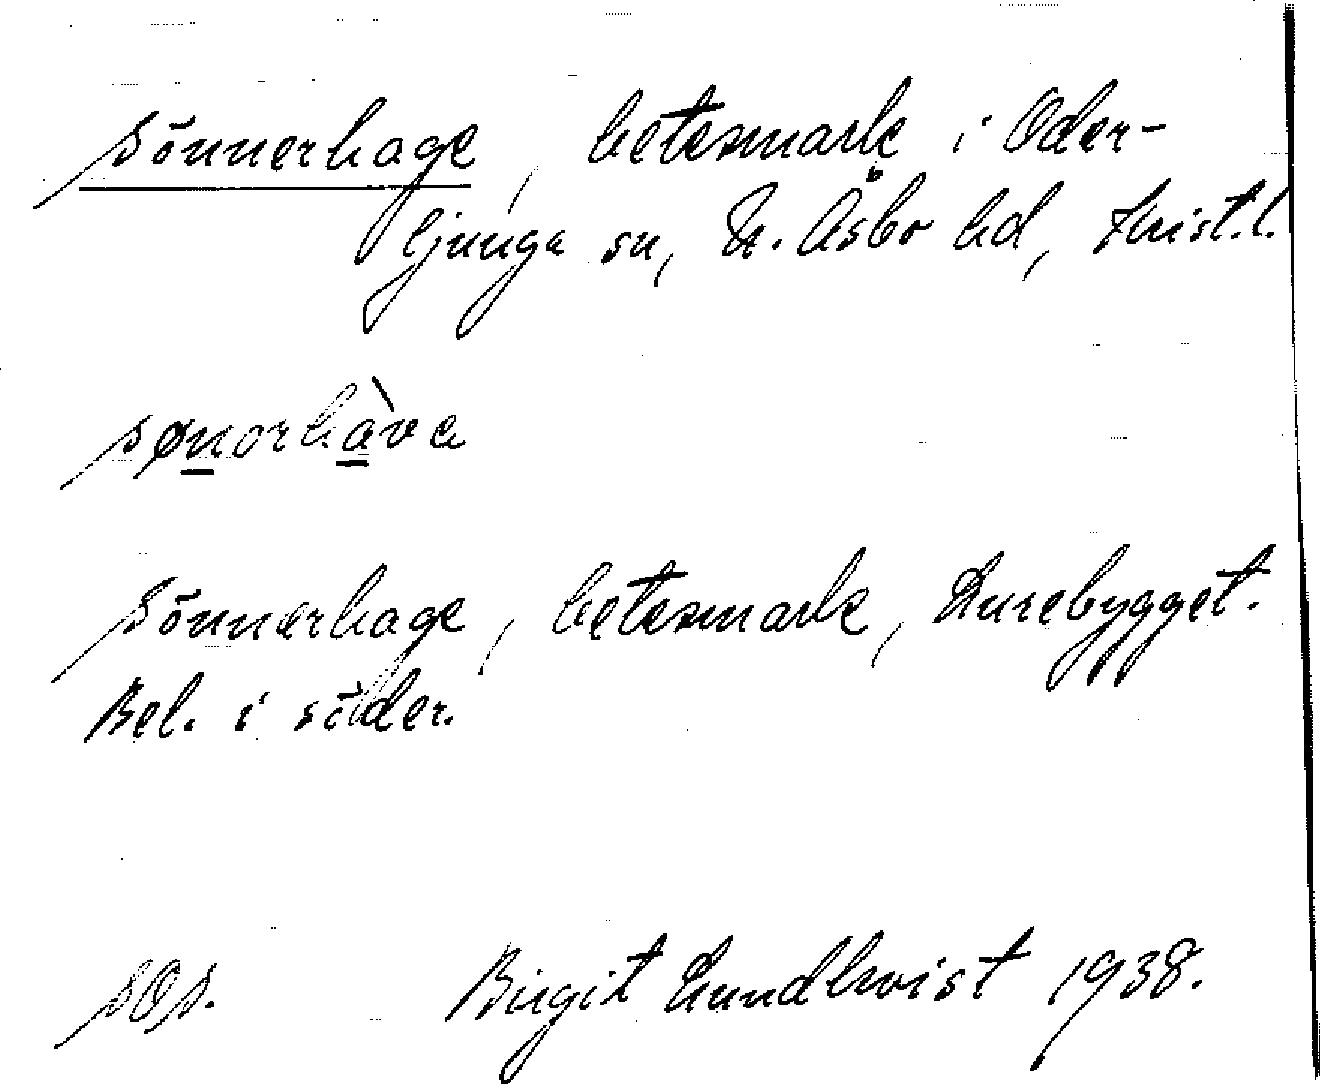 Sönnerhage, betesmark i Oder-
ljunga sn, N. Åsbo hd, Krist.l.
sønorhàva
Sönnerhage, betesmark, Lurebygget.
Bel. i söder.
SOS. Birgit Lundkvist 1938.